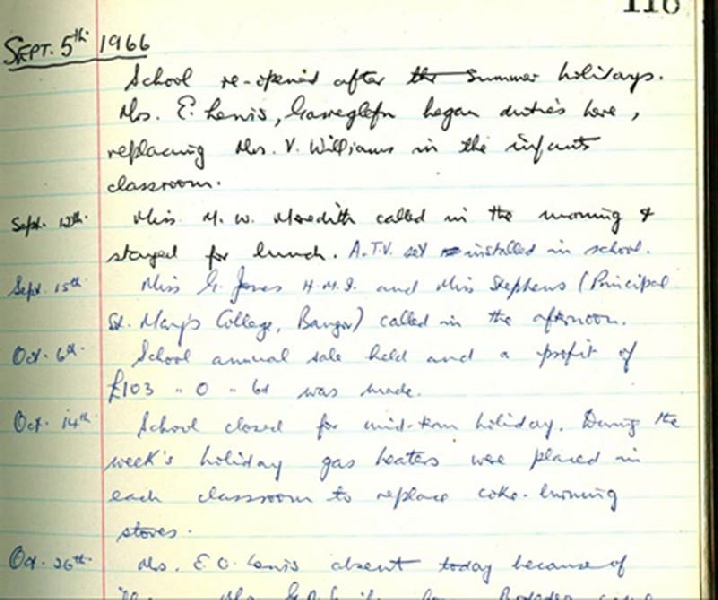 110
SEPT. 5th 1966
School re-opened after the Summer holidays.
Mrs. E. Lewis, Garreglefn began duties here,
replacing Mrs. V. Williams in the infants
classroom.
Sept. 12th. Miss M. W. Meredith called in the morning &
stayed for lunch. A.T.V. set installed in school.
Sept. 15th Miss G. Jones H.M.I. and Miss Stephens (Principal
St. Mary's College, Bangor) called in the afternoon.
Oct. 6th. School annual sale held and a profit of
£103 - 0 - 6d was made.
Oct. 14th School closed for mid-term holiday. During the
week's holiday gas heaters were placed in
each classroom to replace coke-burning
stoves.
Oct. 26th Mrs. E. O. Lewis absent today because of